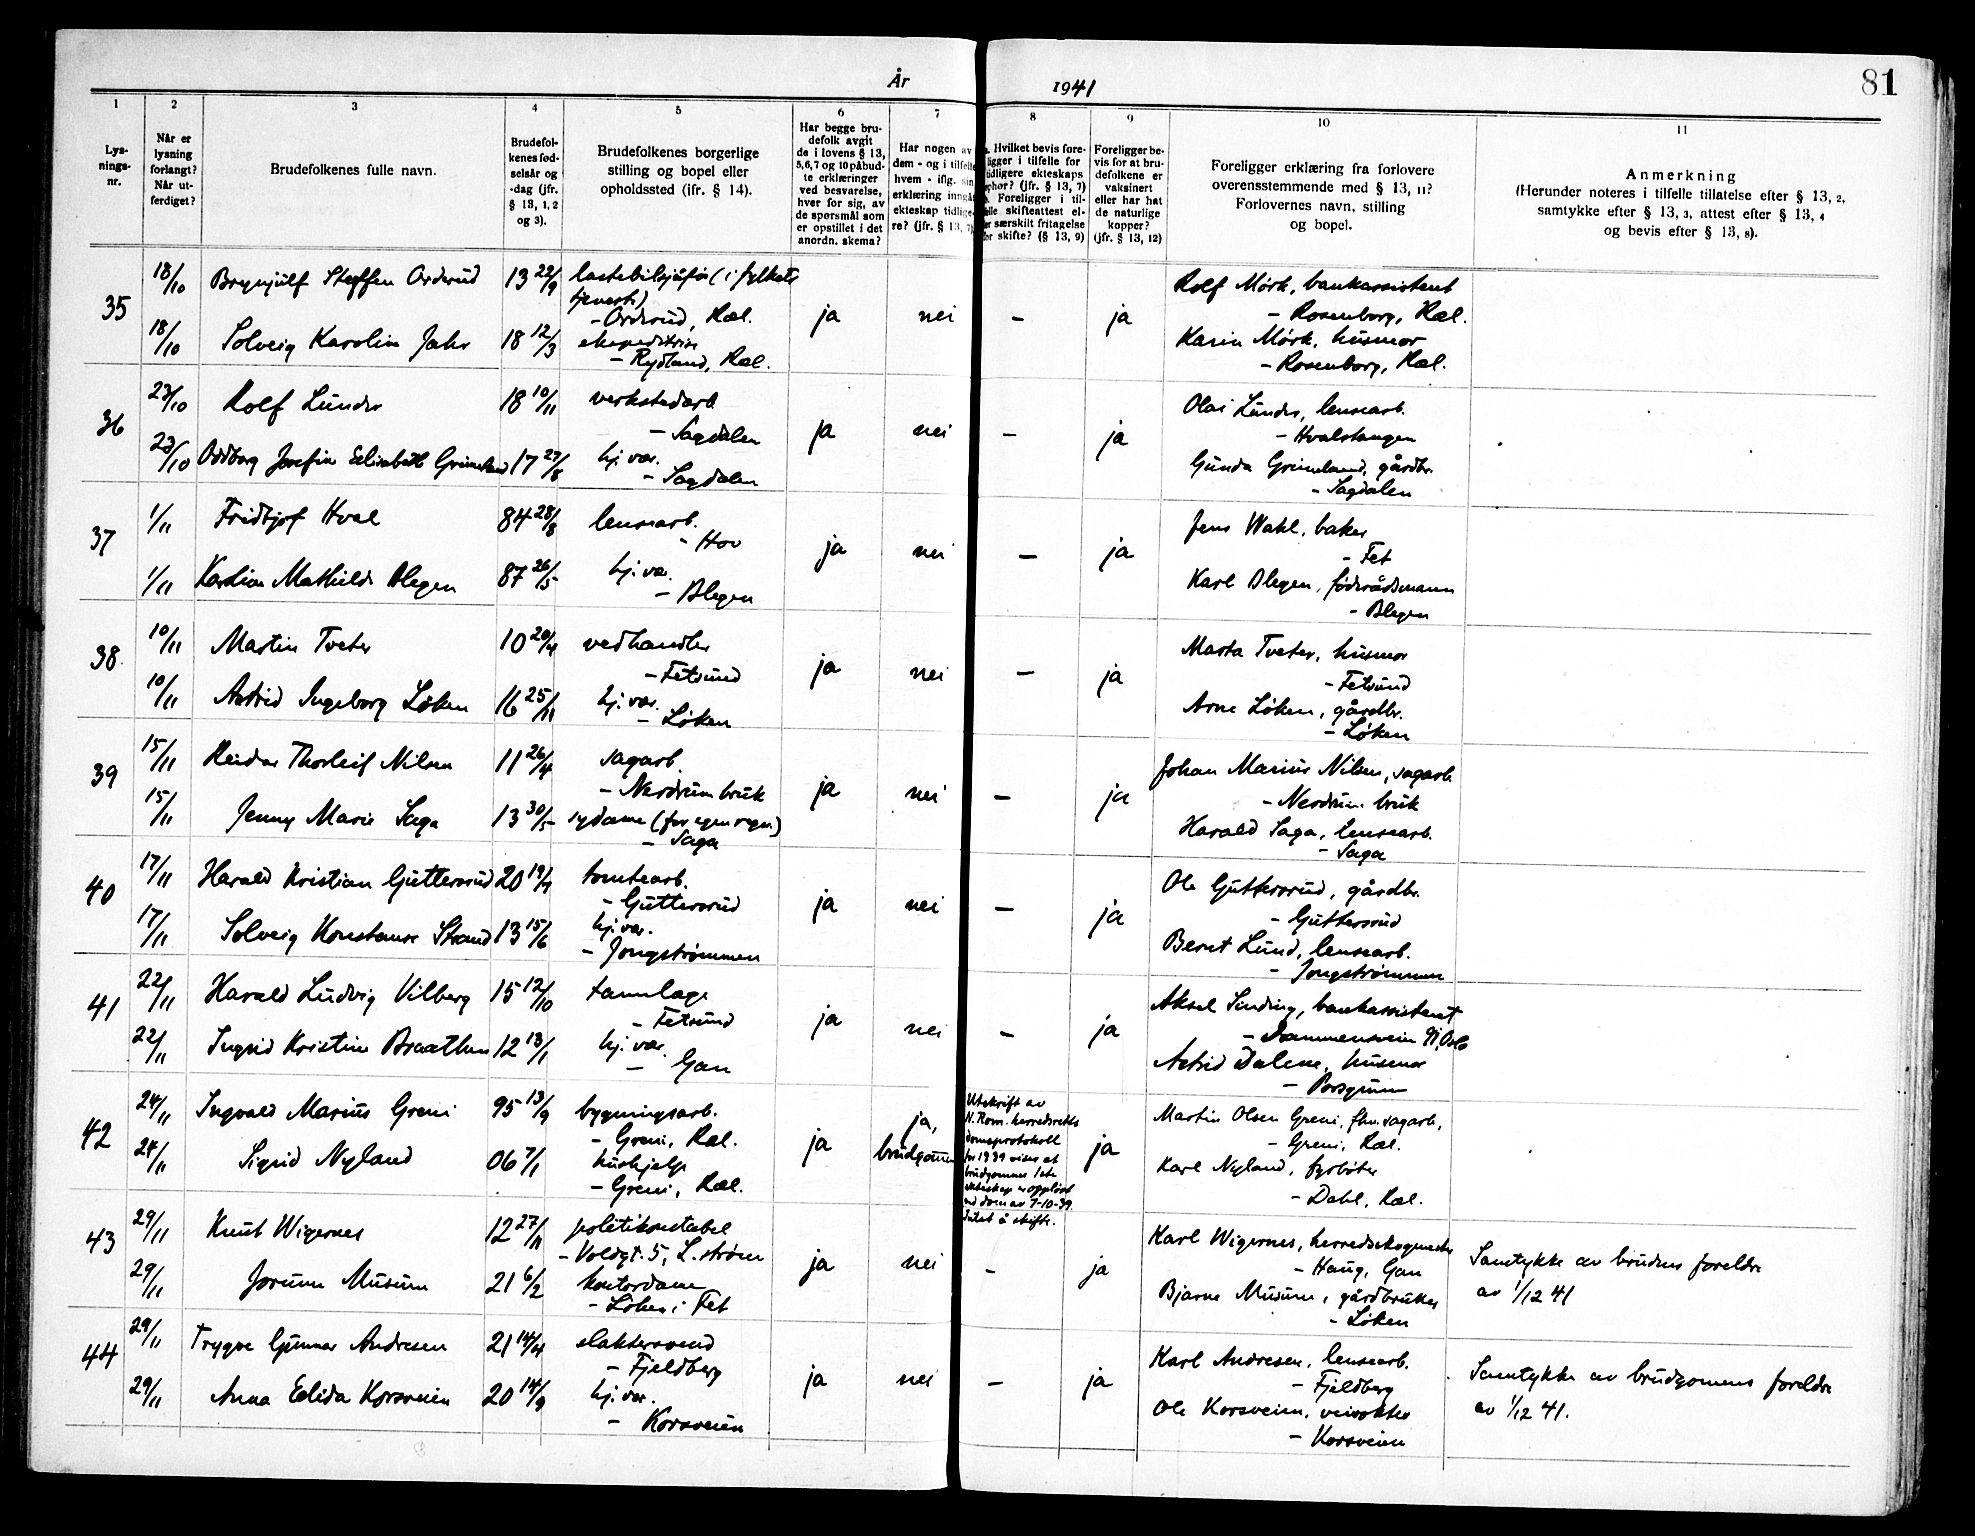 År 1941
81
1 2 3 4 5 6 7 8 9 10 11
Lys-
nings-
nr.
Når er
lysning
forlangt?
Når ut-
ferdiget?
Brudefolkenes fulle navn.
Brudefol-
kenes fød-
selsår og
-dag (jfr.
§ 13, 1, 2
og 3).
Brudefolkenes borgerlige
stilling og bopel eller
opholdssted (ifr. § 14).
Har begge bru-
defolk avgit
de i lovens § 13,
5,6,7 og 10 påbud-
te erklæringer
ved besvarelse,
hver for sig, av
de spørsmål som
er opstillet i det
anordn. skema?
Har nogen av
dem - og i tilfelle
hvem - iflg. sin
erklæring inngå
ekteskap tidlige-
re? (jfr. § 13, 7)
Hvilket bevis fore-
ligger i tilfelle for
tidligere ekteskaps
ophør? (jfr. § 13, 7)
Foreligger i til-
felle skifteattest el-
ler særskilt fritagelse
for skifte? (§ 13, 9)
Foreligger be-
vis for at bru-
defolkene er
vaksinert
eller har hat
de naturlige
kopper?
(jfr. § 13, 12)
Foreligger erklæring fra forlovere
overensstemmende med § 13, 11?
Forlovernes navn, stilling
og bopel.
Anmerkning
(Herunder noteres i tilfelle tillatelse efter § 13, 2,
samtykke efter § 13, 3, attest efter § 13, 4
og bevis efter § 13, 8).
35
18/10 Brynjulf Steffen Orderud 13 22/9 lastebilsjåfør (i fylkets
tjeneste)
- Orderud, Ræl.
18/10 Solveig Karolin Jahr 18 12/3 ekspeditrise
- Rydland, Ræl.
ja nei - ja
Rolf Mørk, bankassistent
- Rosenborg, Ræl.
Karin Mørk, husmor
- Rosenborg, Ræl.
36
23/10 Rolf Lunder 18 10/11 verkstedarb.
- Sagdalen
23/10 Oddborg Josefine Elisabeth Grimeland 17 27/8 hj. vær.
- Sagdalen
ja nei - ja
Olai Lunder, lensearb.
- Hvalstangen
Gunda Grimeland, gårdbr.
- Sagdalen
37
1/11 Fridtjof Hval 84 28/8 lensearb.
- Hov
1/11 Karoline Mathilde Blegen 87 26/5 hj. vær.
- Blegen
ja nei - ja
Jens Wahl, baker
- Fet
Karl Blegen, føderådsmann
- Blegen
38
10/11 Martin Tveter 10 20/4 vedhandler
- Fetsund
10/11 Astrid Ingeborg Løken 16 25/11 hj. vær.
- Løken
ja nei - ja
Marta Tveter, husmor
- Fetsund
Arne Løken, gårdbr.
- Løken
39
15/11 Reidar Thorleif Nilsen 11 26/4 sagarb.
- Nerdrum bruk
15/11 Jenny Marie Saga 13 30/5 sydame (for egen regn.)
- Saga
ja nei - ja
Johan Marius Nilsen, sagarb.
- Nerdrum bruk
Harald Saga, lensearb.
- Saga
40
17/11 Harald Kristian Guttersrud 20 19/4 tomtearb.
- Guttersrud
17/11 Solveig Konstanse Strand 13 15/6 hj. vær.
- Jongstrømmen
ja nei - ja
Ole Guttersrud, gårdbr.
- Guttersrud
Bernt Lund, lensearb.
- Jongstrømmen
41
22/11 Harald Ludvig Vilberg 15 12/10 tannlæge
- Fetsund
22/11 Ingrid Kristine Braathen 12 13/1 hj. vær.
- Gan
ja nei - ja
Aksel Sinding, bankassistent
- Drammensveien 91, Oslo
Astrid Dalene, husmor
- Porsgrunn
42
24/11 Ingvald Marius Greni 95 13/9 bygningsarb.
- Greni, Ræl.
24/11 Sigrid Nyland 06 7/1 hushjelp
- Greni, Ræl.
ja
ja,
brudgommen
Utskrift av
N. Rom. herredsretts
domsprotokoll
for 1939 viser at
brudgommes 1ste
ekteskap er oppløst
ved dom av 7-10-39.
Intet å skifte.
ja
Martin Olsen Greni, fhv. sagarb.,
- Greni, Ræl.
Karl Nyland, fyrbøter
- Dahl, Ræl.
43
29/11 Knut Wigernes 12 27/11 politikonstabel
- Voldgt. 5, L.strøm
29/11 Jorunn Musum 21 6/2 kontordame
- Løken i Fet
ja nei - ja
Karl Wigernes, herredsskogmester
- Haug, Gan
Bjarne Musum, gårdbruker
- Løken
Samtykke av brudens foreldre
av 1/12 41
44
29/11 Trygve Gunnar Andresen 21 14/4 slaktersvend
- Fjeldberg
29/11 Anna Edida Korsveien 20 14/9 hj. vær.
- Korsveien
ja nei - ja
Karl Andresen, lensearb.
- Fjeldberg
Ole Korsveien, veivokter
- Korsveien
Samtykke av brudgomens foreldre
av 1/12 41.